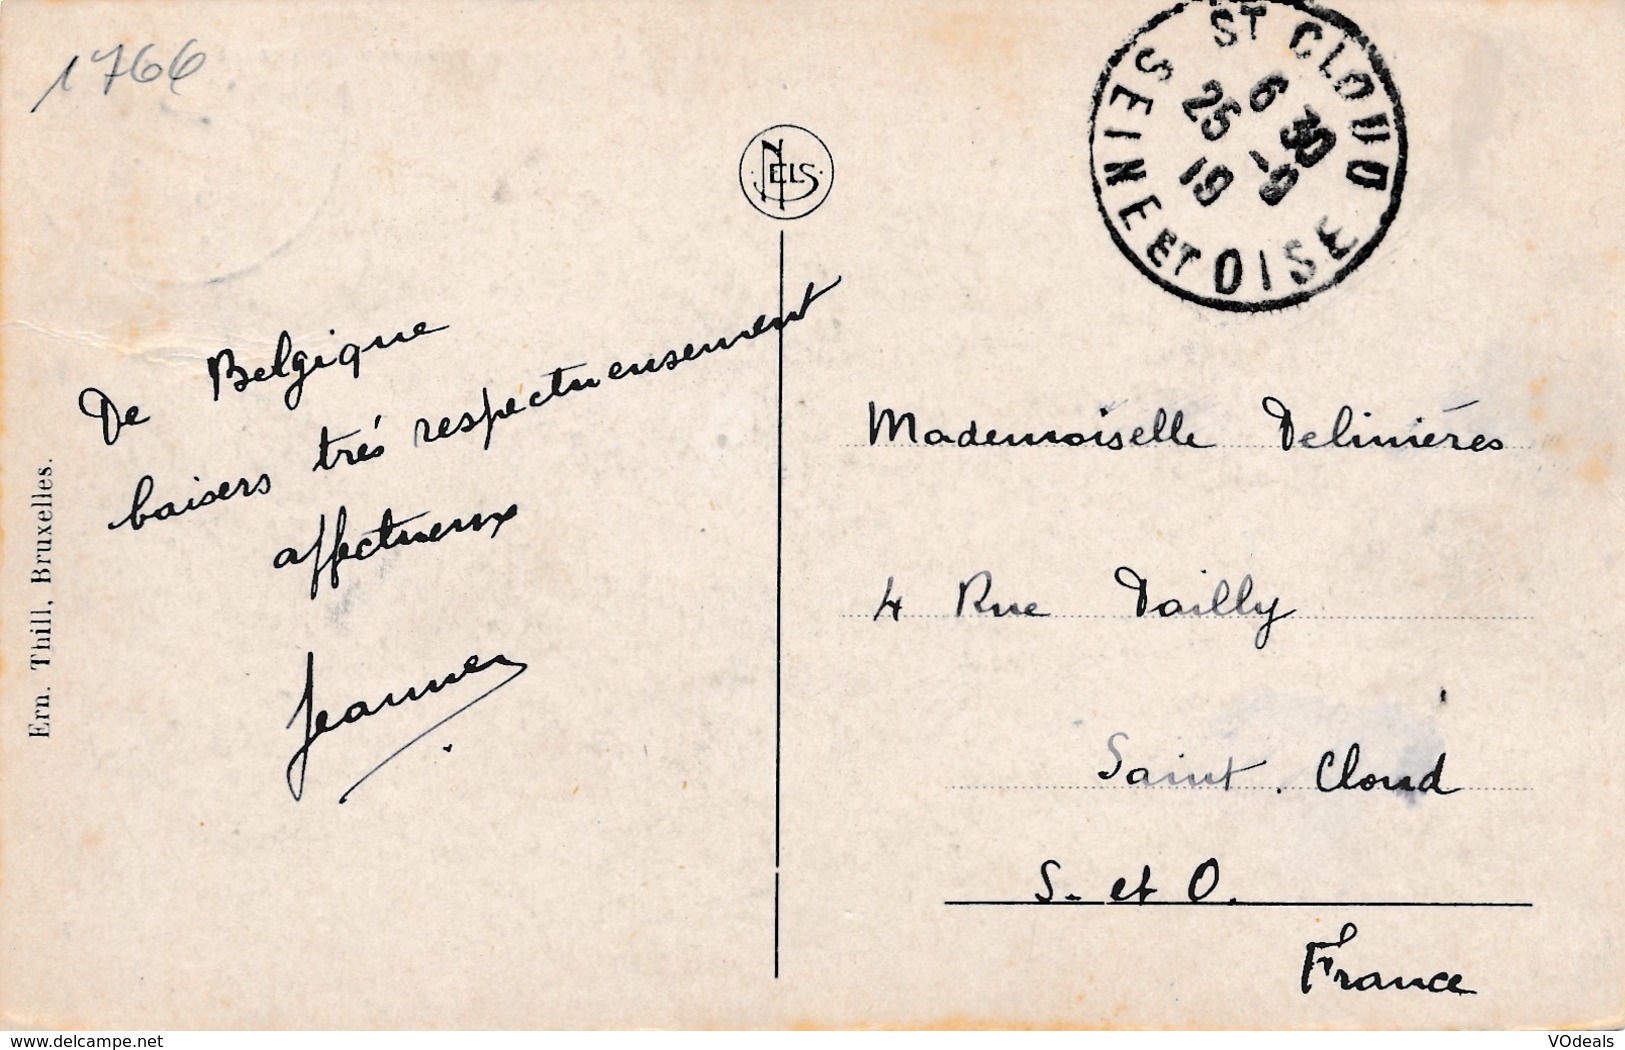 1766
NELS
ST CLOUD
6 30
25 -9
19
SEINE ET OISE
De Belgique
baisers trés respectueusement
affectueux
Jeanne
Mademoiselle Delinières
4 Rue Dailly
Saint. Cloud
S. et O.
France
Ern. Thill, Bruxelles.
www.delcampe.net
VOdeals